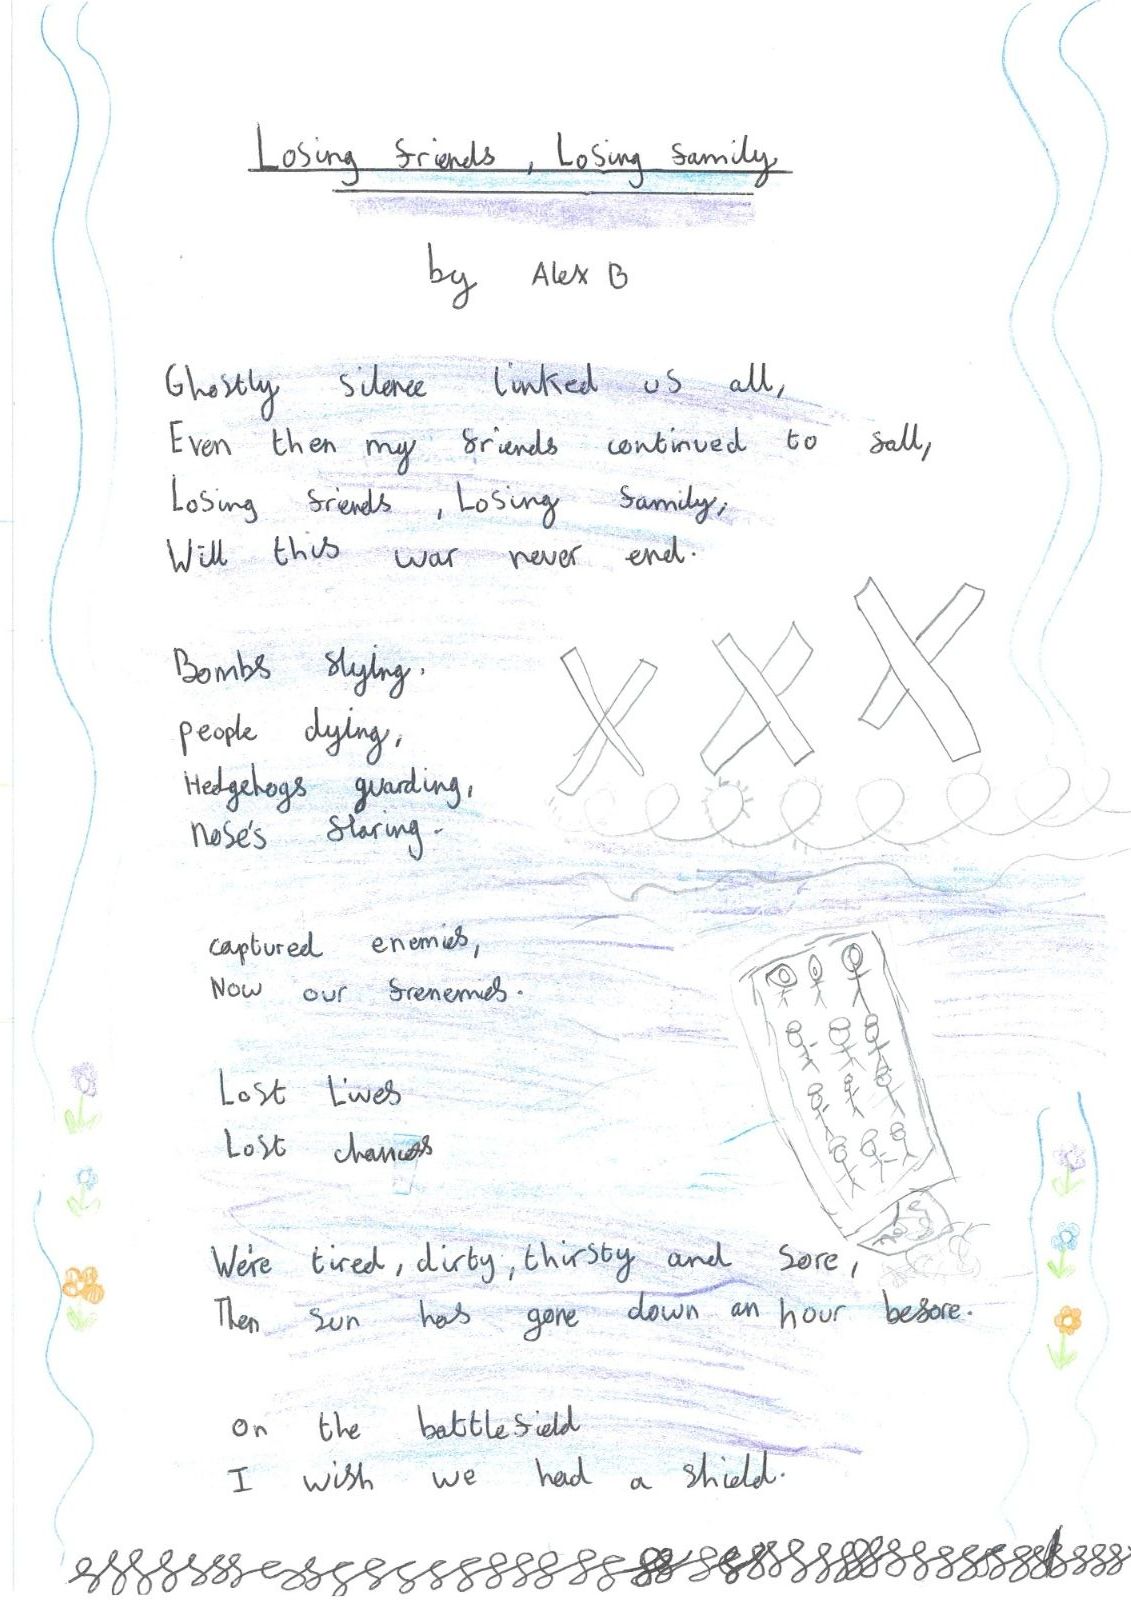 Losing friends, Losing family
by Alex B
Ghostly silence linked us all,
Even then my friends continued to fall,
Losing friends, Losing family,
Will this war never end.
Bombs flying.
people dying,
Hedgehogs guarding,
Nose's flaring.
captured enemies,
Now our frenemies.
Lost Lives
Lost chances
We're tired, dirty, thirsty and sore,
Then sun has gone down an hour before.
on the battlefield
I wish we had a shield.